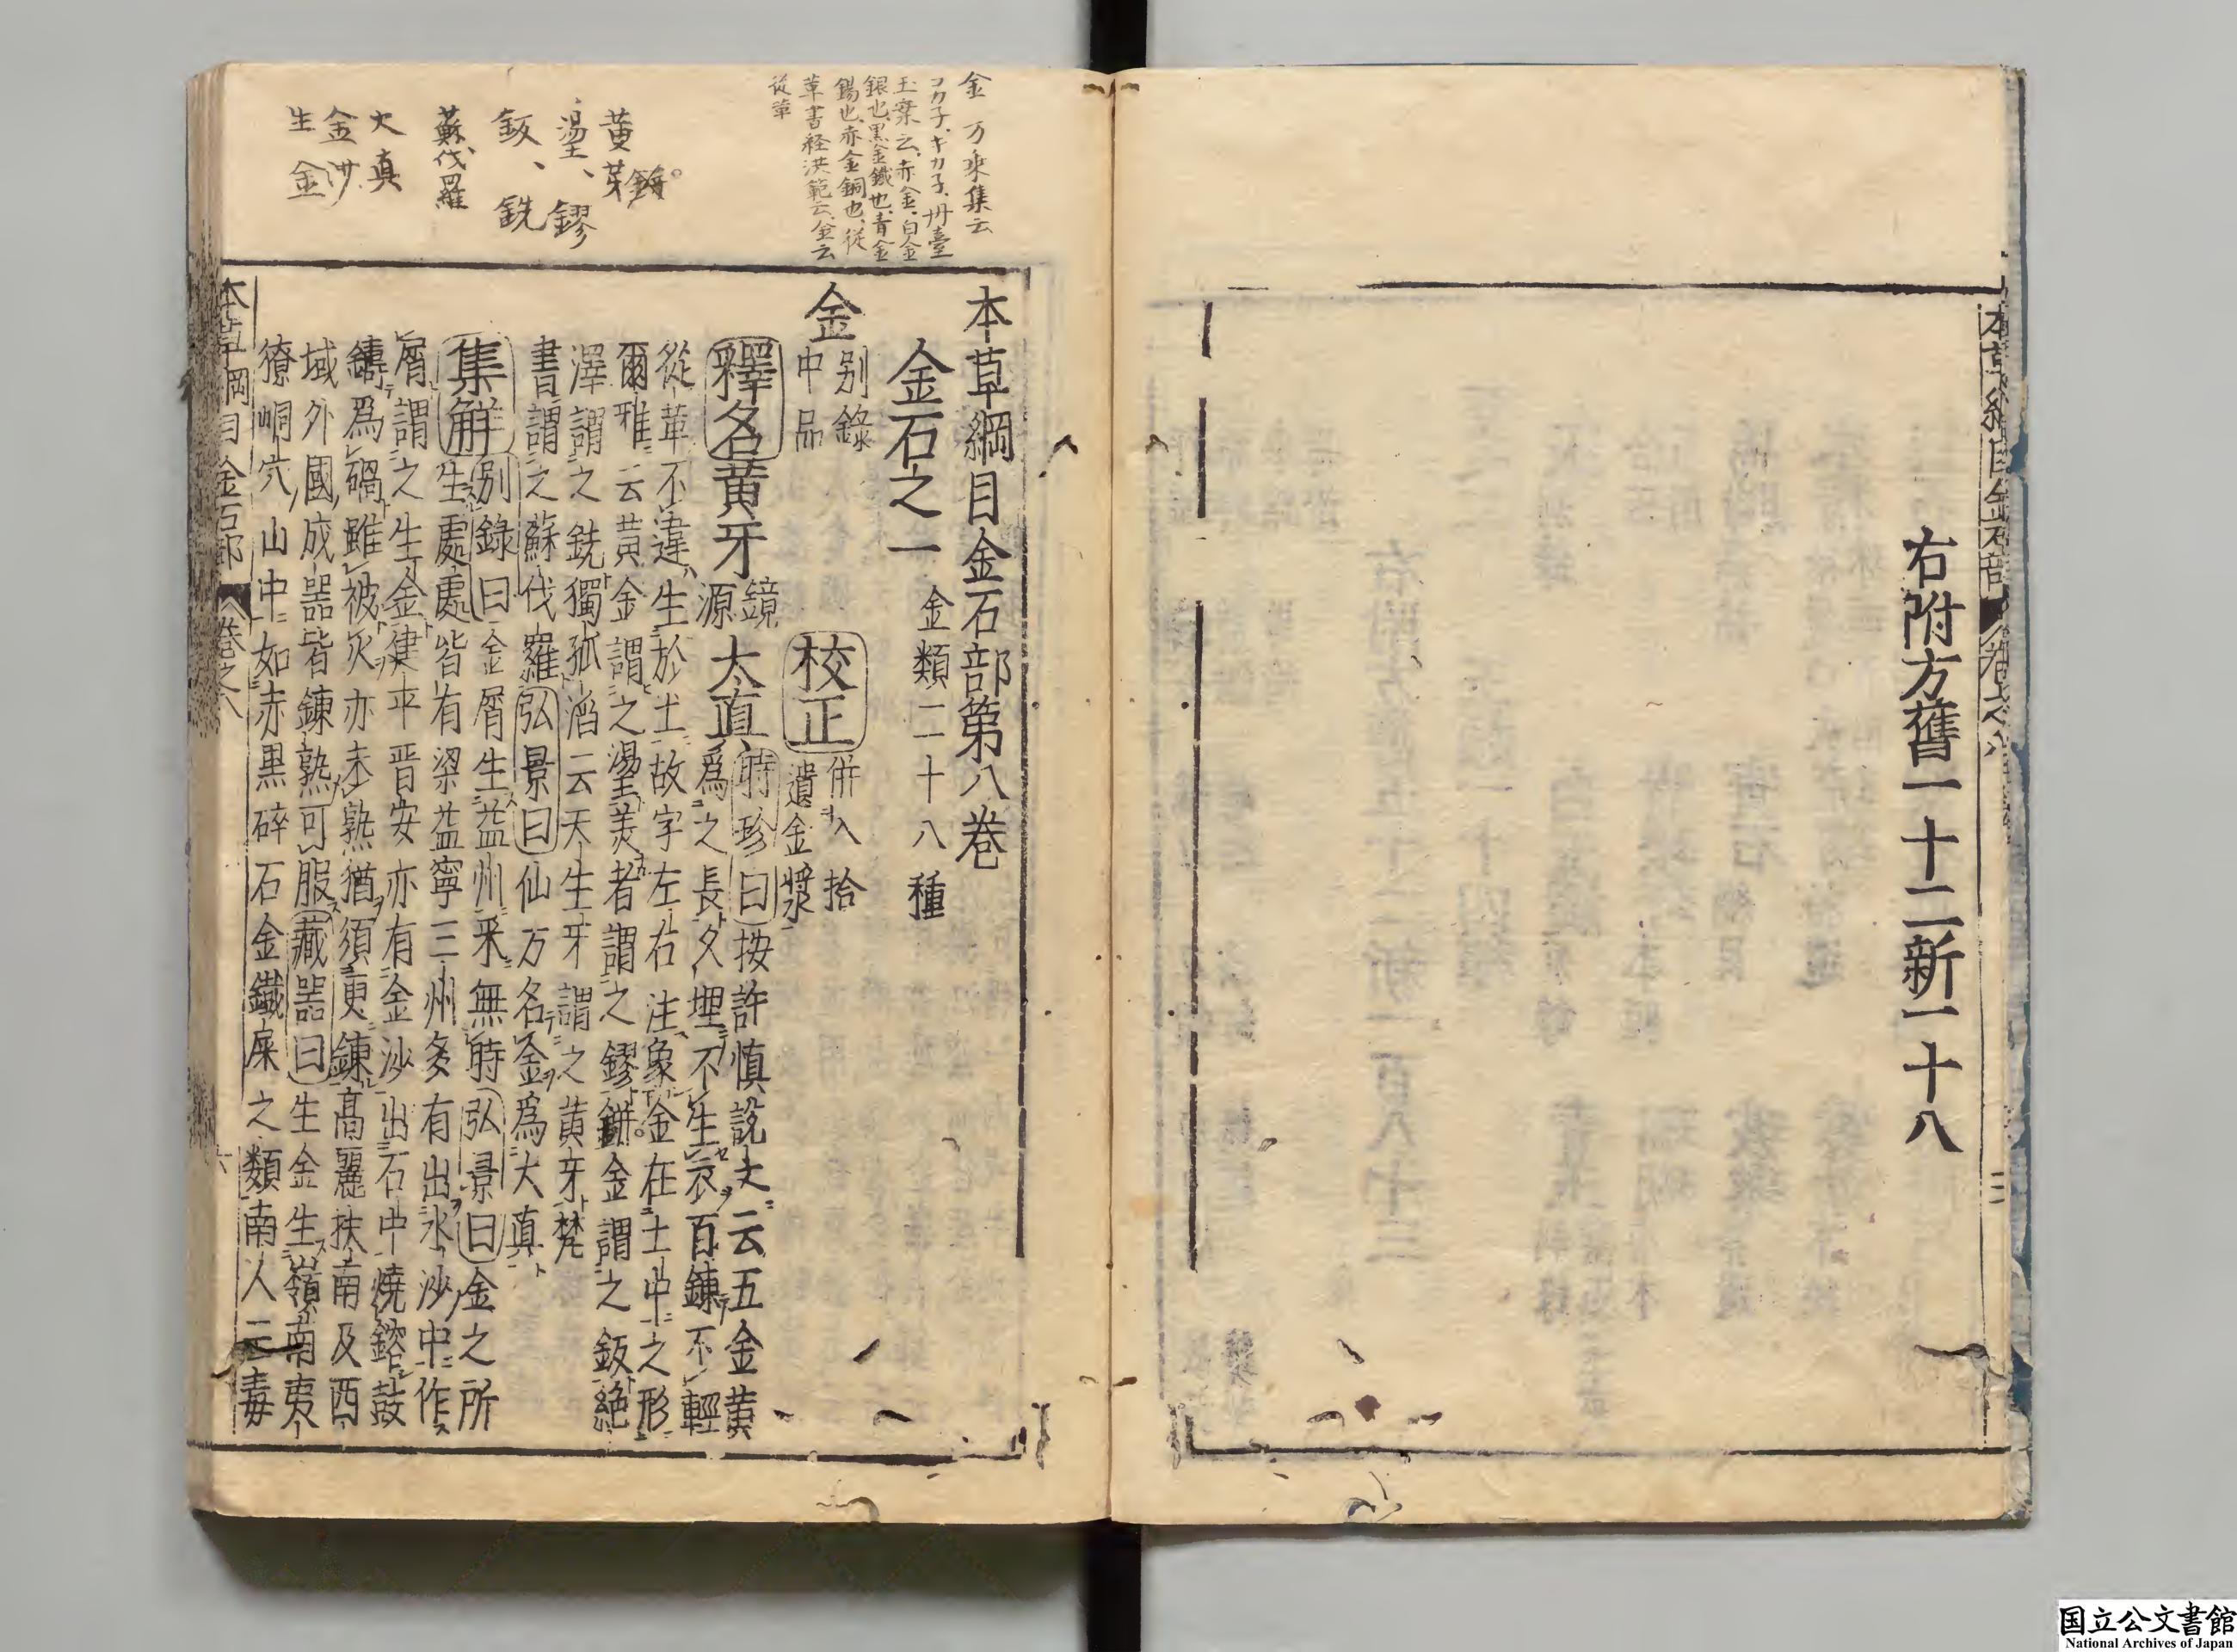 右附方舊一十二新一十八
金 万乘集云
コカ子、キカ子、丹臺
玉案云、赤金、白金
銀也、黒金鐵也、青金
錫也、赤金銅也、從
革書経洪範云、金云
從革
黄芽
鉼
璗、鏐
鈑、銑
蘇伐羅
大真
金沙
生金
本草綱目金石部第八卷
金石之一 金類二十八種
金 别錄中品 校正 併入拾遺金漿
釋名 黄牙 鏡源 太真 時珍曰按許慎說文云五金黄
爲之長久埋不生衣百鍊不輕
從革不違生於土故字左右注象金在土中之形
爾雅云黄金謂之璗美者謂之鏐鉼金謂之鈑絶
澤謂之銑獨孤滔云天生牙謂之黄牙梵
書謂之蘇伐羅弘景曰仙方名金爲大真
集解 别錄曰金屑生益州采無時弘景曰金之所
生處處皆有梁益寧三州多有出水沙中作
屑謂之生金建平晋安亦有金沙出石中燒鎔鼓
鑄爲碢雖被火亦未熟猶須更鍊高麗扶南及西
域外國成器皆鍊熟可服藏器曰生金生嶺南夷
獠峒穴山中如赤黒碎石金鐵屎之類南人云毒
本草綱目 金石部 卷之八 六
本草綱目金石部 卷之八
国立公文書館
National Archives of Japan